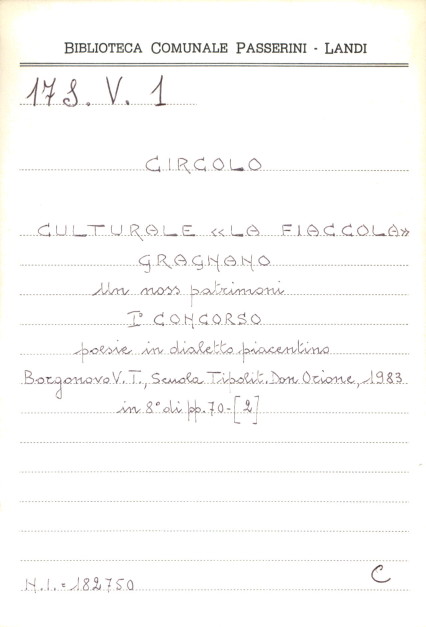 BIBLIOTECA COMUNALE PASSERINI - LANDI
17S. V. 1
CIRCOLO
CULTURALE «LA FIACCOLA»
GRAGNANO
Un noss patrimoni
I° CONCORSO
poesie in dialetto piacentino
Borgonovo V.T., Scuola Tipolit. Don Orione, 1983
in 8° di pp. 70-[2]
C
N.I. = 182750